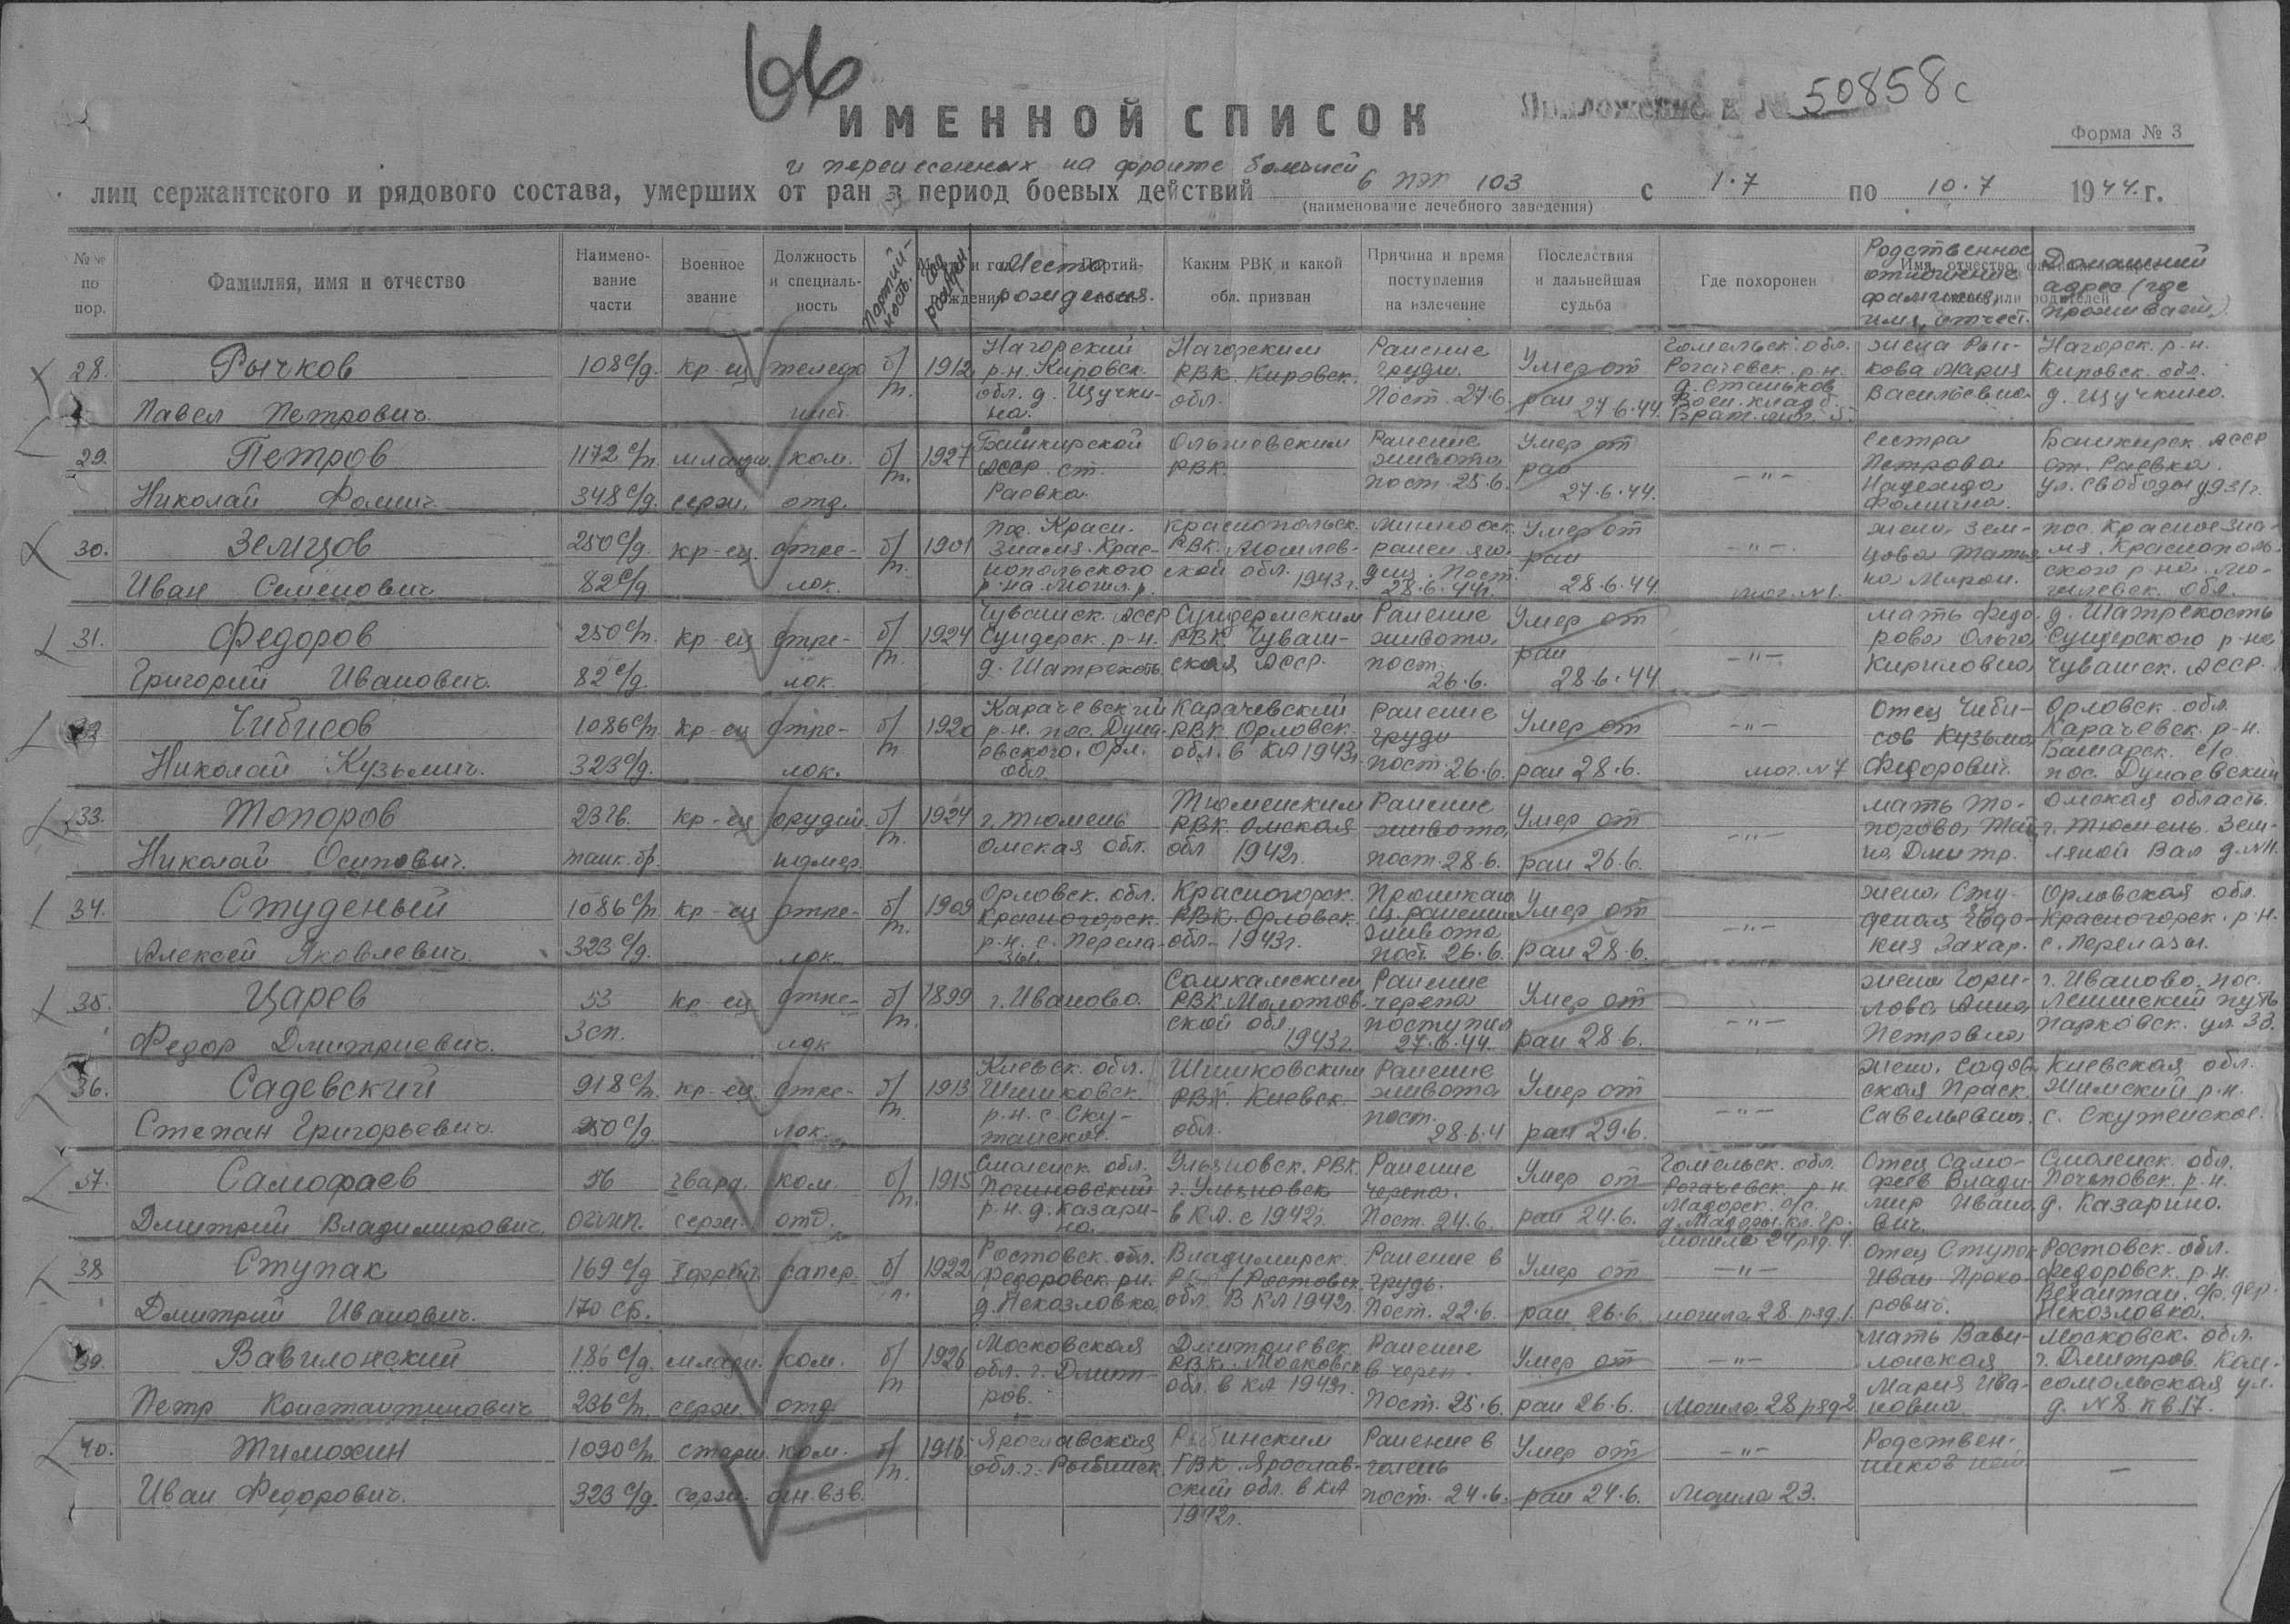 66
ИМЕННОЙ СПИСОК
Приложение к № 50858с
Форма № 3
и перенесенных на фронте болезней
лиц сержантского и рядового состава, умерших от ран в период боевых действий 6 ППГ 103 с 1.7 по 10.7 1944 г.
(наименование лечебного заведения)
№№ по пор.
Фамилия, имя и отчество
Наименование части
Военное звание
Должность и специальность
Партийность.
Год рожден.
Место рождения.
Каким РВК и какой обл. призван
Причина и время поступления на излечение
Последствия и дальнейшая судьба
Где похоронен
Родственное отношение фамилия, имя, отчест.
Домашний адрес (где проживает)
28. Рычков Павел Петрович. 108 с/д. кр-ец телефонист. б/п. 1912 Нагорский р-н. Кировск. обл. д. Щучкина. Нагорским РВК. Кировск. обл. Ранение груди. Пост. 27.6. Умер от ран 27.6.44. Гомельск. обл. Рогачевск. р-н. д. Станьков Воен. кладб. Брат. мог. 5. жена Рычкова Мария Васильевна. Нагорск. р-н. Кировск. обл. д. Щучкино.
29. Петров Николай Фомич. 1172 с/п. 348 с/д. младш. серж. ком. отд. б/п. 1927 Башкирской АССР. ст. Раевка. РВК. Ранение живота пост. 25.6. Умер от ран 27.6.44. -"- сестра Петрова Надежда Фомична. Башкирск. АССР ст. Раевка. ул. Свободы
30. Земцов Иван Семенович 250 с/д. 82 с/д кр-ец. стрелок. б/п. 1901 пос. Красн. Знамя. Краснопольского р-на Могил. Краснопольск. РВК. Могилевской обл. 1943г. Минно оск. ранен. Пост. 28.6.44г. Умер от ран 28.6.44 -"- мог. №1. жена Земцова Татьяна Мирон. пос. Красное Знамя. Краснопольского р-на. Могилевск. обл.
31. Федоров Григорий Иванович. 250 с/п. 82 с/д. кр-ец стрелок. б/п. 1924 Чувашск. АССР Сундерск. р-н. д. Шатрекость Сундерским РВК Чувашская АССР. Ранение живота. пост. 26.6. Умер от ран 28.6.44 -"- мать Федорова Ольга Кириловна д. Шатрекость Сундерского р-на Чувашск. АССР.
32 Чибисов Николай Кузьмич. 1086 с/п 323 с/д. кр-ец стрелок. б/п 1920 Карачевский р-н. пос. Дунаевского. Орл. обл. Карачевский РВК Орловск. обл. в КА 1943г. Ранение груди пост. 26.6. Умер от ран 28.6. -"- мог. №7 Отец Чибисов Кузьма Федорович. Орловск. обл. Карачевск. р-н. с/с. пос. Дунаевский
33. Топоров Николай Осипович. 23 гв. танк. бр. кр-ец орудий. номер. б/п. 1924 г. Тюмень Омская обл. Тюменским РВК. Омская обл 1942г. Ранение живота, пост. 28.6. Умер от ран 26.6. -"- мать Топорова Дмитр. Омская область. г. Тюмень. Земляной Вал д. №11.
34. Студеный Алексей Яковлевич. 1086 с/п 323 с/д. кр-ец стрелок. б/п. 1909 Орловск. обл. Красногорск. р-н. с. Перелазы. Красногорск. РВК. Орловск. обл. 1943г. Проникающ. ранение живота пост. 26.6. Умер от ран 28.6. -"- жена Студеная Евдокия Захар. Орловская обл. Красногорск. р-н. с. Перелазы.
35. Царев Федор Дмитриевич. 53 Зсп. кр-ец стрелок б/п. 1899 г. Иваново. Соликамским РВК Молотовской обл. 1943г. Ранение черепа поступил 27.6.44. Умер от ран 28.6. -"- жена Горилова Анна Петровна г. Иваново. пос. Ленинский путь Парковск. ул. 33.
36. Садевский Степан Григорьевич. 918 с/п. 250 с/д кр-ец. стрелок. б/п. 1913 Киевск. обл. р-н. с. РВК. Киевск. обл. Ранение живота пост. 28.6.4 Умер от ран 29.6. -"- жена. Садовская Праск. Савельевна. Киевская обл. р-н. с.
37. Самофаев Дмитрий Владимирович. 56 гвард. серж. ком. отд. б/п. 1915 Смоленск. обл. Починовский р-н. д. Казарино. Ульяновск. РВК. г. Ульяновск в КА. с 1942г. Ранение черепа. Пост. 24.6. Умер от ран 24.6. Гомельск. обл. Рогачевск. р-н. Мадорск. с/с. д. Мадоры. могила 24 ряд. 4. Отец Владимир Иванович. Смоленск. обл. Починовск. р-н. д. Казарино.
38 Ступак Дмитрий Иванович. 169 с/д 170 ефрейт. сапер б/п. 1922 Ростовск. обл. Федоровск. рн. д. Некозловка. Владимирск. (Ростовск. обл. В КА 1942г. Ранение в грудь. Пост. 22.6. Умер от ран 26.6. -"- могила 28 ряд. 1. отец Ступак Иван Ростовск. обл. Федоровск. р.н. Некозловка.
39. Вавилонский Петр Константинович 186 с/д. 236 с/п. младш. серж. ком. отд. б/п 1926 Московская обл. г. Дмитров. Дмитриевск. РВК. Московск. обл. в КА 1943г. Ранение в череп. Пост. 25.6. Умер от ран 26.6. -"- Могила 28 ряд 2 мать Вавилонская Мария Ивановна. Московск. обл. г. Дмитров. Комсомольская ул. д. №8. кв 17.
40. Тимохин Иван Федорович. 1090 с/п 323 с/д. старш. серж. ком. отд. взв. б/п. 1916 Ярославская обл. г. Рыбинск Рыбинским ГВК Ярославский обл. в КА 1942г. Ранение в голень пост. 24.6. Умер от ран 24.6. -"- Могила 23. Родственников нет —